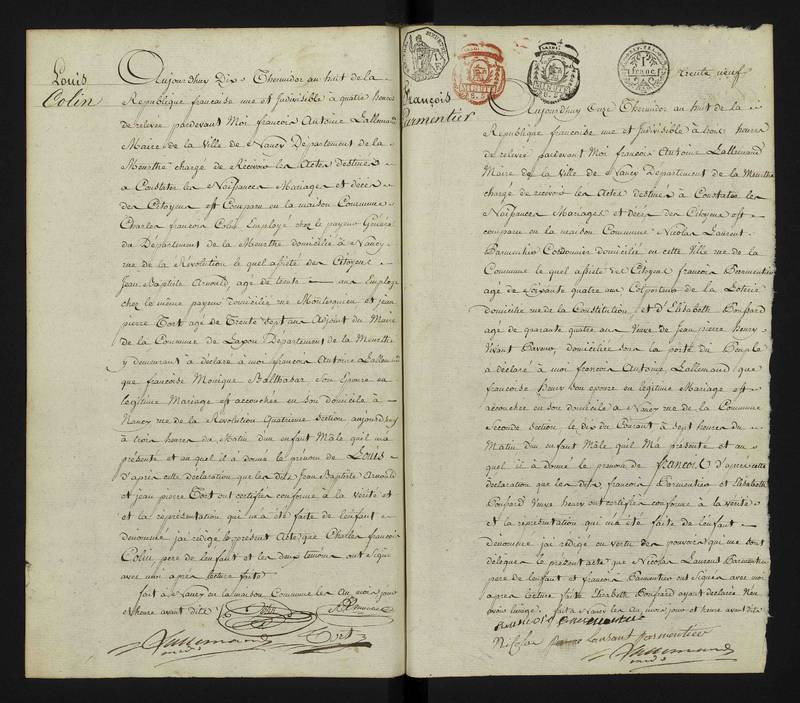 Louis
Colin
Aujourdhuy Dix Thermidor an huit de la
Republique francaise une et Indivisible à quatre heures
de relevée pardevant Moi francois Antoine Lallemand
Maire de la Ville de Nancy Departement de la
Meurthe chargé de Recevoir les Actes destinés
a Constater les Naissances Mariages et décès
des Citoyens est Comparu en la maison Commune
Charles francois Colin Employé chez le payeur Général
du Departement de la Meurthe domicilié à Nancy
rue de la Révolution le quel assisté des Citoyens
Jean Baptiste Arnould, agé de trente ans Employé
chez le même payeur domicilié rue Montesquieu et jean
pierre Tort agé de Trente sept ans Adjoint du Maire
de la Commune de Laxou Departement de la Meurthe
y demeurant à déclaré à moi francois Antoine Lallemand
que francoise Monique Balthasar Son Epouse en
legitime Mariage est accouchée en son domicile à
Nancy rue de la Revolution Quatrieme section aujourdhuy
à trois heures du Matin d'un enfant Mâle quel ma
présenté et au quel il à donné le prénom de Louis
d'apres cette déclaration que les dits Jean Baptiste Arnould
et jean pierre Tort ont certifiée conforme à la vérité et
et la représentation qui m'a été faite de l'enfant
dénommé jai redigé le présent Acte que Charles francois
Colin, pere de l'enfant et les deux temoins ont Signé
avec moi apres lecture faite
fait à Nancy en la maison Commune les An mois jour
et heure avant dits
Colin
Lallemand
Tort
trente neuf
1 franc
François
Parmentier
Aujourdhuy Onze Thermidor an huit de la
Republique francoise une et Indivisible à trois heures
de relevée pardevant Moi francois Antoine Lallemand
Maire de la Ville de Nancy Departement de la Meurthe
chargé de récévoir les Actes destinés à Constater les
Naissances Mariages et décès des Citoyens est
comparu en la maison Commune Nicolas Laurent
Parmentier Cordonnier domicilié en cette Ville rue de la
Commune le quel assisté du Citoyen francois Parmentier
agé de Soixante quatre ans Colporteur de la Loterie
domicilié rue de la Constitution et d'Elisabeth Poussard
agée de quarante quatre ans Veuve de Jean pierre henry
Vivant domiciliée sous la porte du Peuple
à déclaré à moi francois Antoine Lallemand que
francoise Henry Son epouse en legitime Mariage est
accouchée en son domicile à Nancy rue de la Commune
Seconde section le dix du Courant à sept heures du
Matin d'un enfant Mâle quil Ma présenté et au
quel il à donné le prenom de francois d'après cette
déclaration que les dits francois Parmentier et Elisabeth
Poussard Veuve henry ont certifiée conforme à la Vérité
et la représentation qui m'a été faite de l'enfant
dénommé jai rédigé en vertu des pouvoirs qui me sont
délégués le présent acte que Nicolas Laurent Parmentier
pere de l'enfant et francois Parmentier ont Signés avec moi
apres lecture faite Elisabeth Poussard ayant declarée N'en
avoir l'usage fait à Nancy les An mois jour et heure avant dits
francois parmentier
Nicolas Laurant parmentier
Lallemand